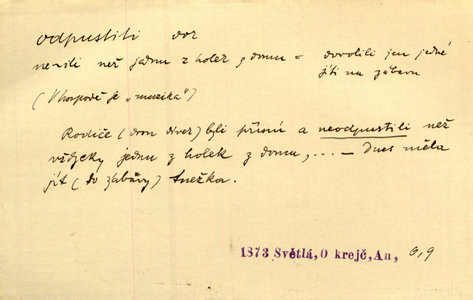 odpustiti dov
než jednu z holek z domu = dovolili jen jedné
jíti na zábavu
(V hospodě je „muzika")
Rodiče (dvou dívek) byli přísní a neodpustili než
vždycky jednu z holek z domu, ... — Dnes měla
jít (do zábavy) Anežka.
1873 Světlá, O krejč, An, 6,9